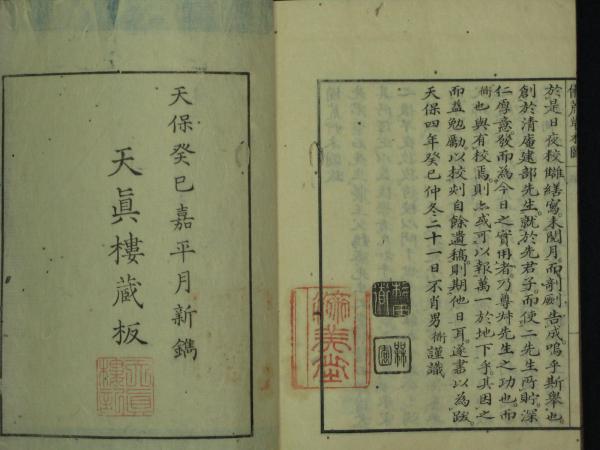 於是日夜校讎繕寫。未閱月。而剞劂告成。嗚乎斯舉也。
創於清庵建部先生。就於先君子。而使二先生所貯深
仁厚意。發而爲今日之實用者。乃尊艸先生之功也。而
衙也與有校焉。則亦或可以報萬一於地下乎。其因之
而益勉勵。以校刻自餘遺稿。則期他日耳。遂書以為跋。
天保四年癸巳仲冬二十一日不肖男衙謹識
天保癸巳嘉平月新鐫
天眞樓蔵板